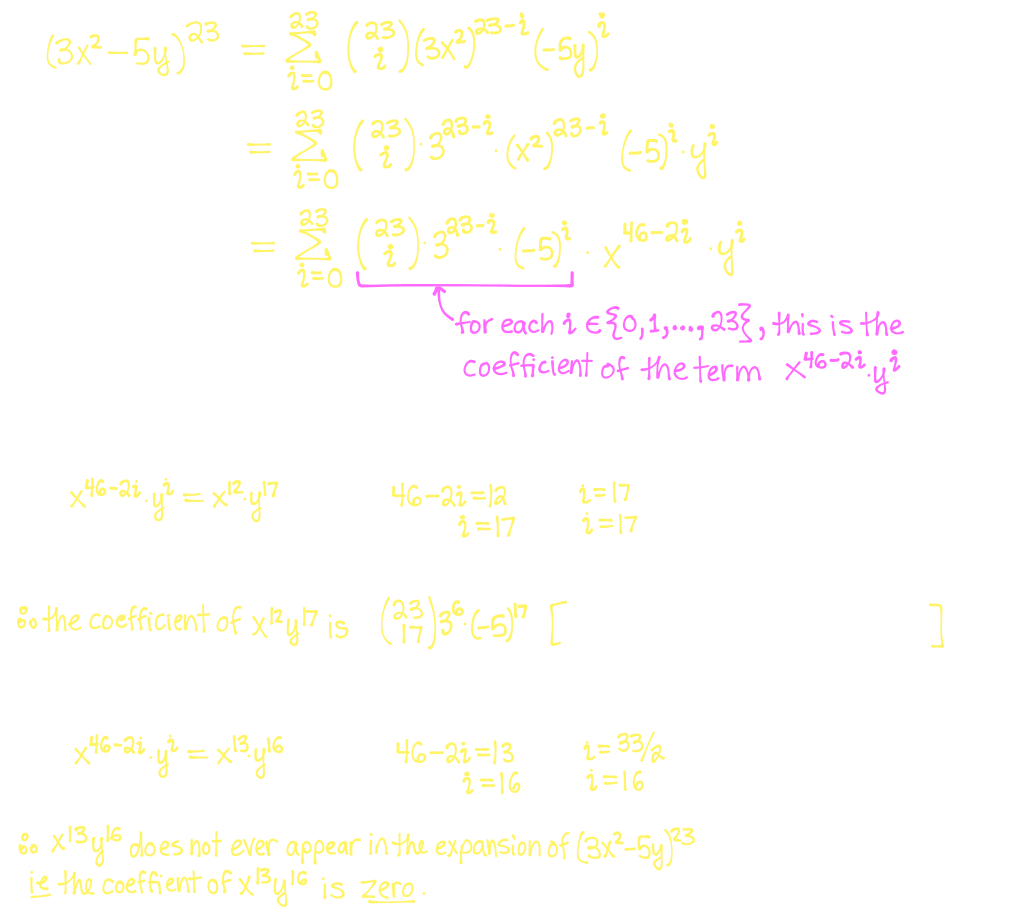 (3x² − 5y)²³ = ∑_{i=0}^{23} (23 choose i) (3x²)^{23−i} (−5y)^i
= ∑_{i=0}^{23} (23 choose i) · 3^{23−i} · (x²)^{23−i} (−5)^i · y^i
= ∑_{i=0}^{23} (23 choose i) · 3^{23−i} · (−5)^i · x^{46−2i} · y^i
for each i ∈ {0, 1, ..., 23}, this is the
coefficient of the term x^{46−2i} · y^i
x^{46−2i} · y^i = x^{12} · y^{17} 46 − 2i = 12 i = 17
i = 17 i = 17
∴ the coefficient of x^{12} y^{17} is (23 choose 17) 3^6 · (−5)^{17} [ ]
x^{46−2i} · y^i = x^{13} · y^{16} 46 − 2i = 13 i = 33/2
i = 16 i = 16
∴ x^{13} y^{16} does not ever appear in the expansion of (3x² − 5y)^{23}
ie the coeffient of x^{13} y^{16} is zero.